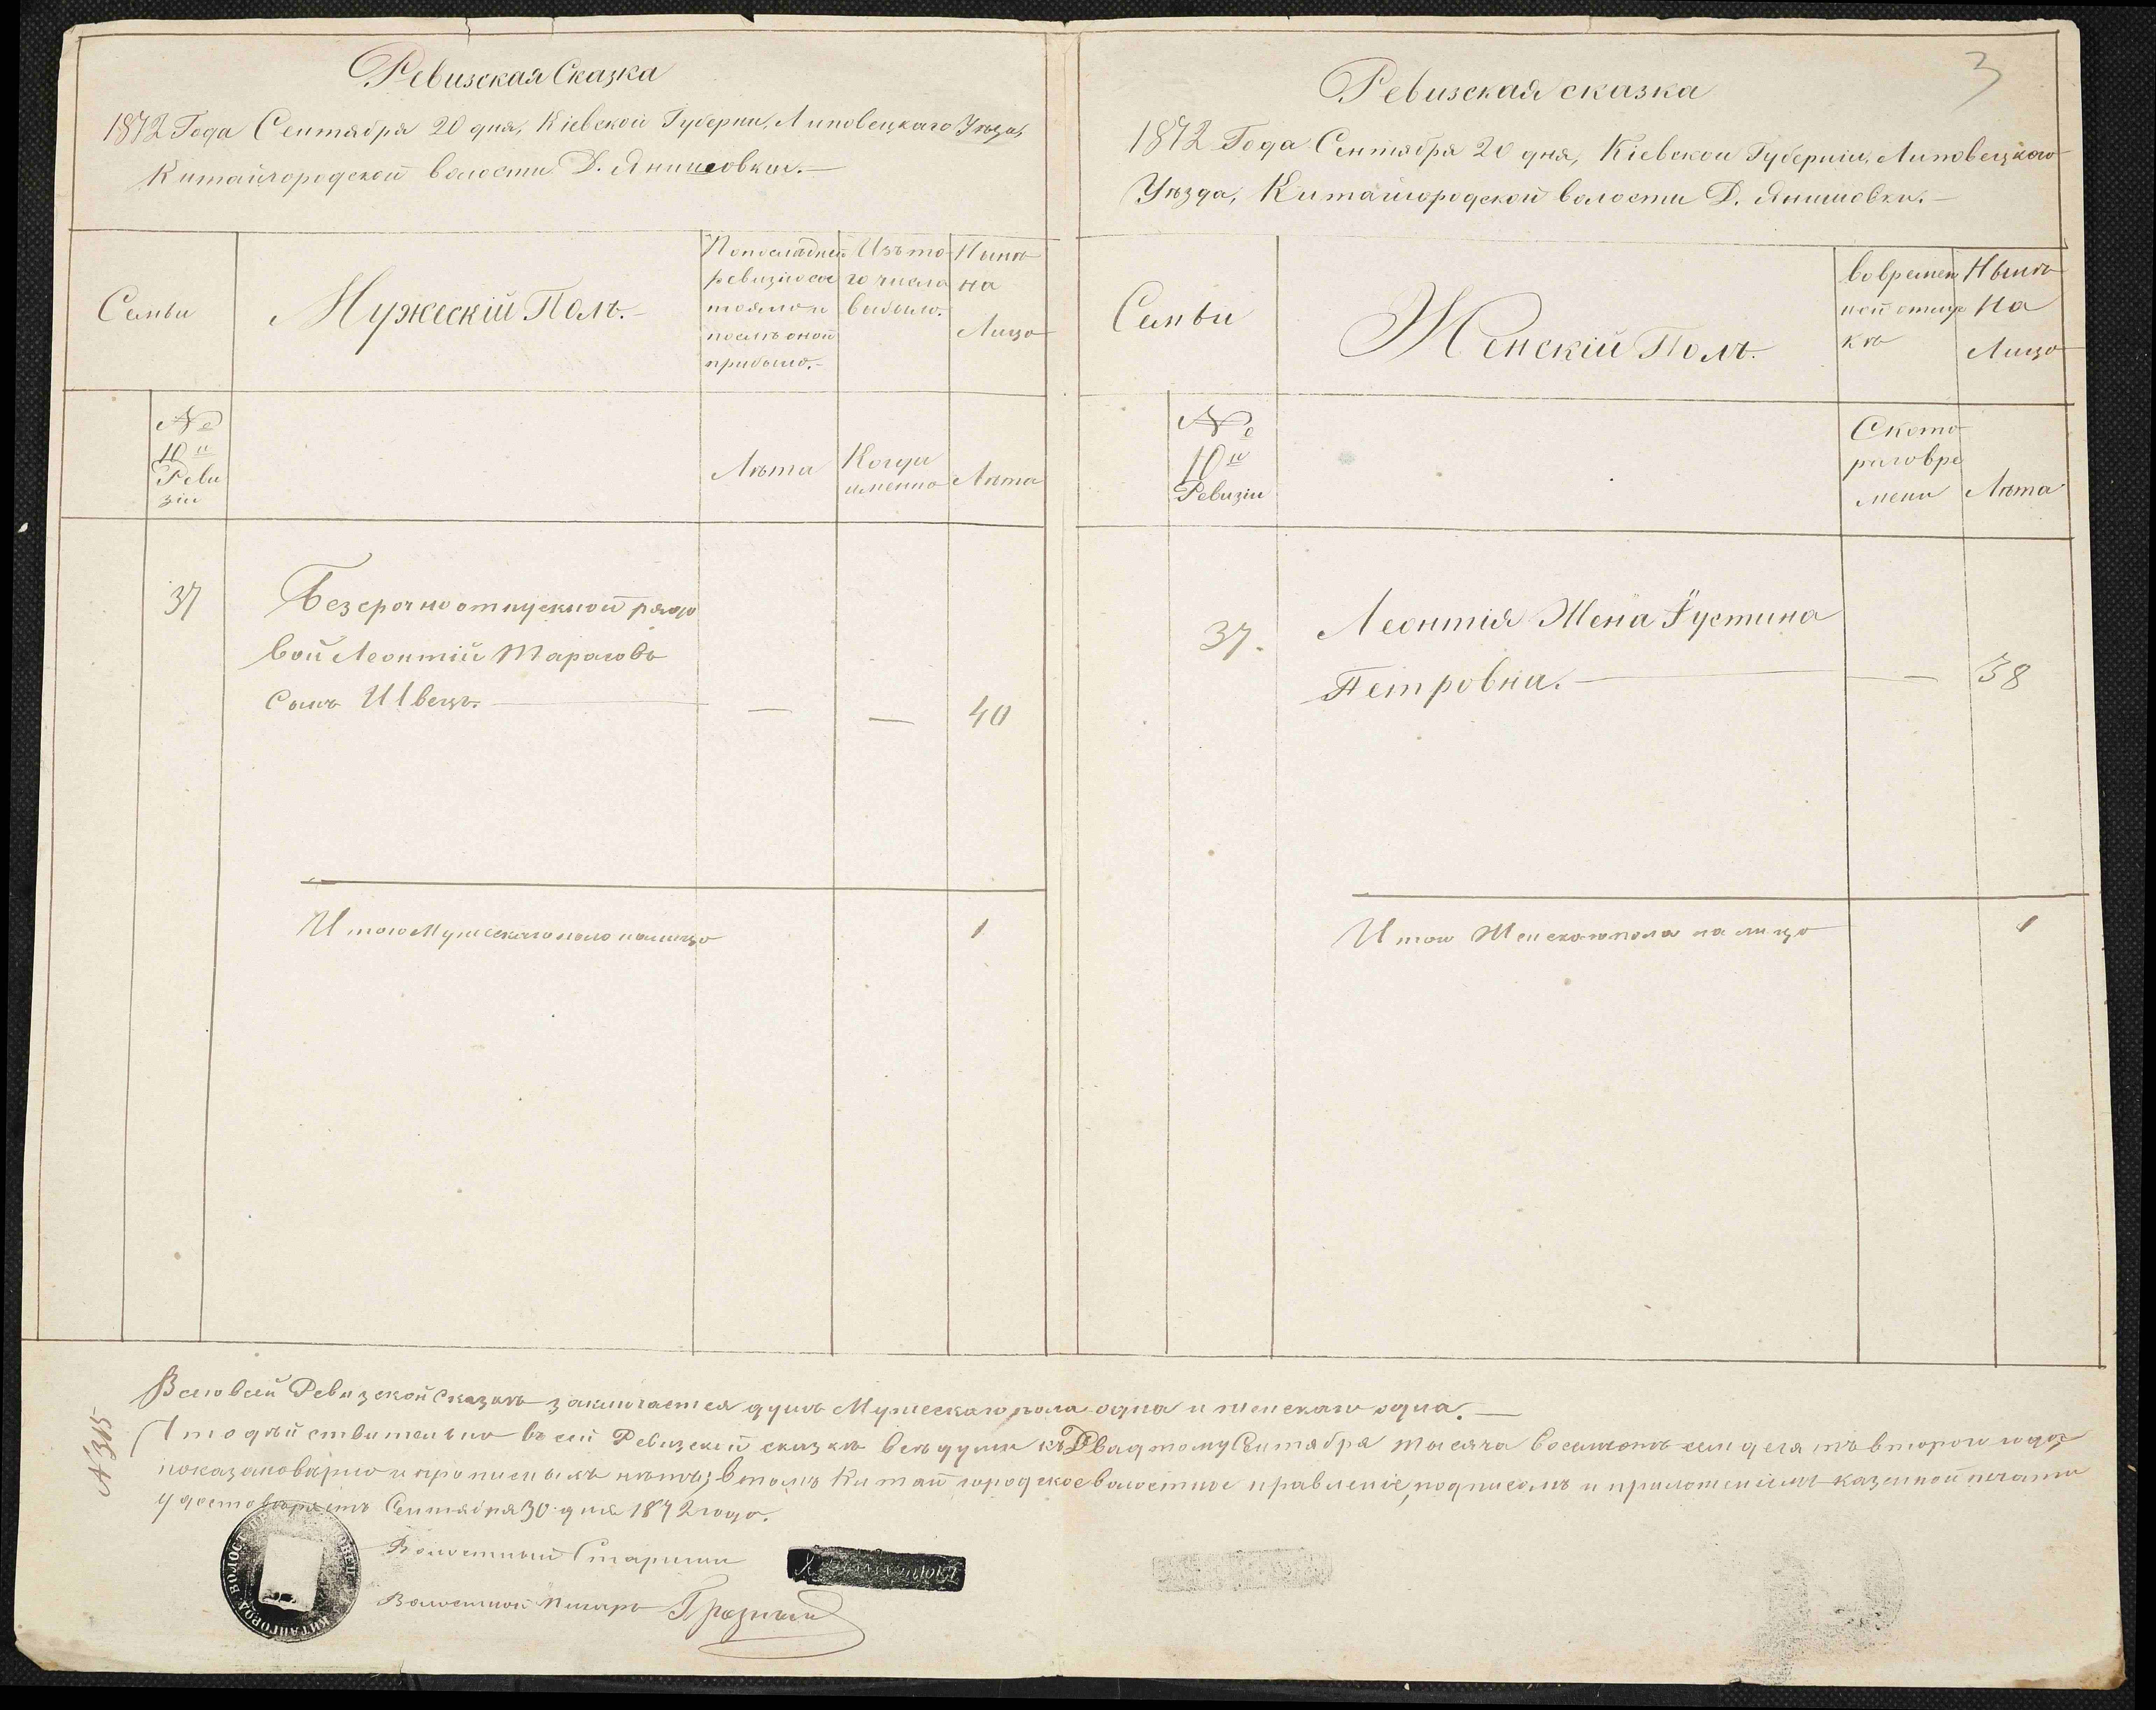 Ревизская Сказка
1872 Года Сентября 20 дня, Кіевской Губерни, Липовецкаго Уѣзда,
Китайгородской волости Д. Янишовки.
Семьи
Мужескій Полъ.
Попослѣдней
ревизіи сос
тояло и
послѣ оной
прибыло.
Изъ то
го числа
выбыло.
Нынѣ
на
Лицо
№
10й
Реви
зіи
Лѣта
Когда
именно
Лѣта
37
Безсрочноотпускной рядо
вой Леонтій Тарасовъ
сынъ Швецъ.
40
Итого Мужескаго пола налицо
1
3
Ревизская сказка
1872 Года Сентября 20 дня, Кіевской Губерніи, Липовецкаго
Уѣзда, Китайгородской волости Д. Янишовки.
Семьи
Женскій Полъ.
вовремен
ной отлуч
кѣ
Нынѣ
На
Лицо
№
10й
Ревизіи
Ското
раго вре
мени
Лѣта
37.
Леонтія Жена Іустина
Петровна.
38
Итого Женскаго пола на лицо
1
№ 315
Всего всей Ревизской Сказкѣ заключается душъ Мужескаго пола одна и женскаго одна.
А что дѣйствительно въ сей Ревизской сказкѣ всѣ души къ Двадцатому Сентября тысяча восемьсотъ семьдесятъ второго года
показано вѣрно и прописныхъ нѣтъ, в томъ Китайгородское волостное правленіе, подписомъ и приложеніемъ казенной печати
удостовѣряетъ Сентября 30 дня 1872 года.
Волостный Старшина
Волостной Писарь Грозный
КИТАЙГОРОД ВОЛОСТ